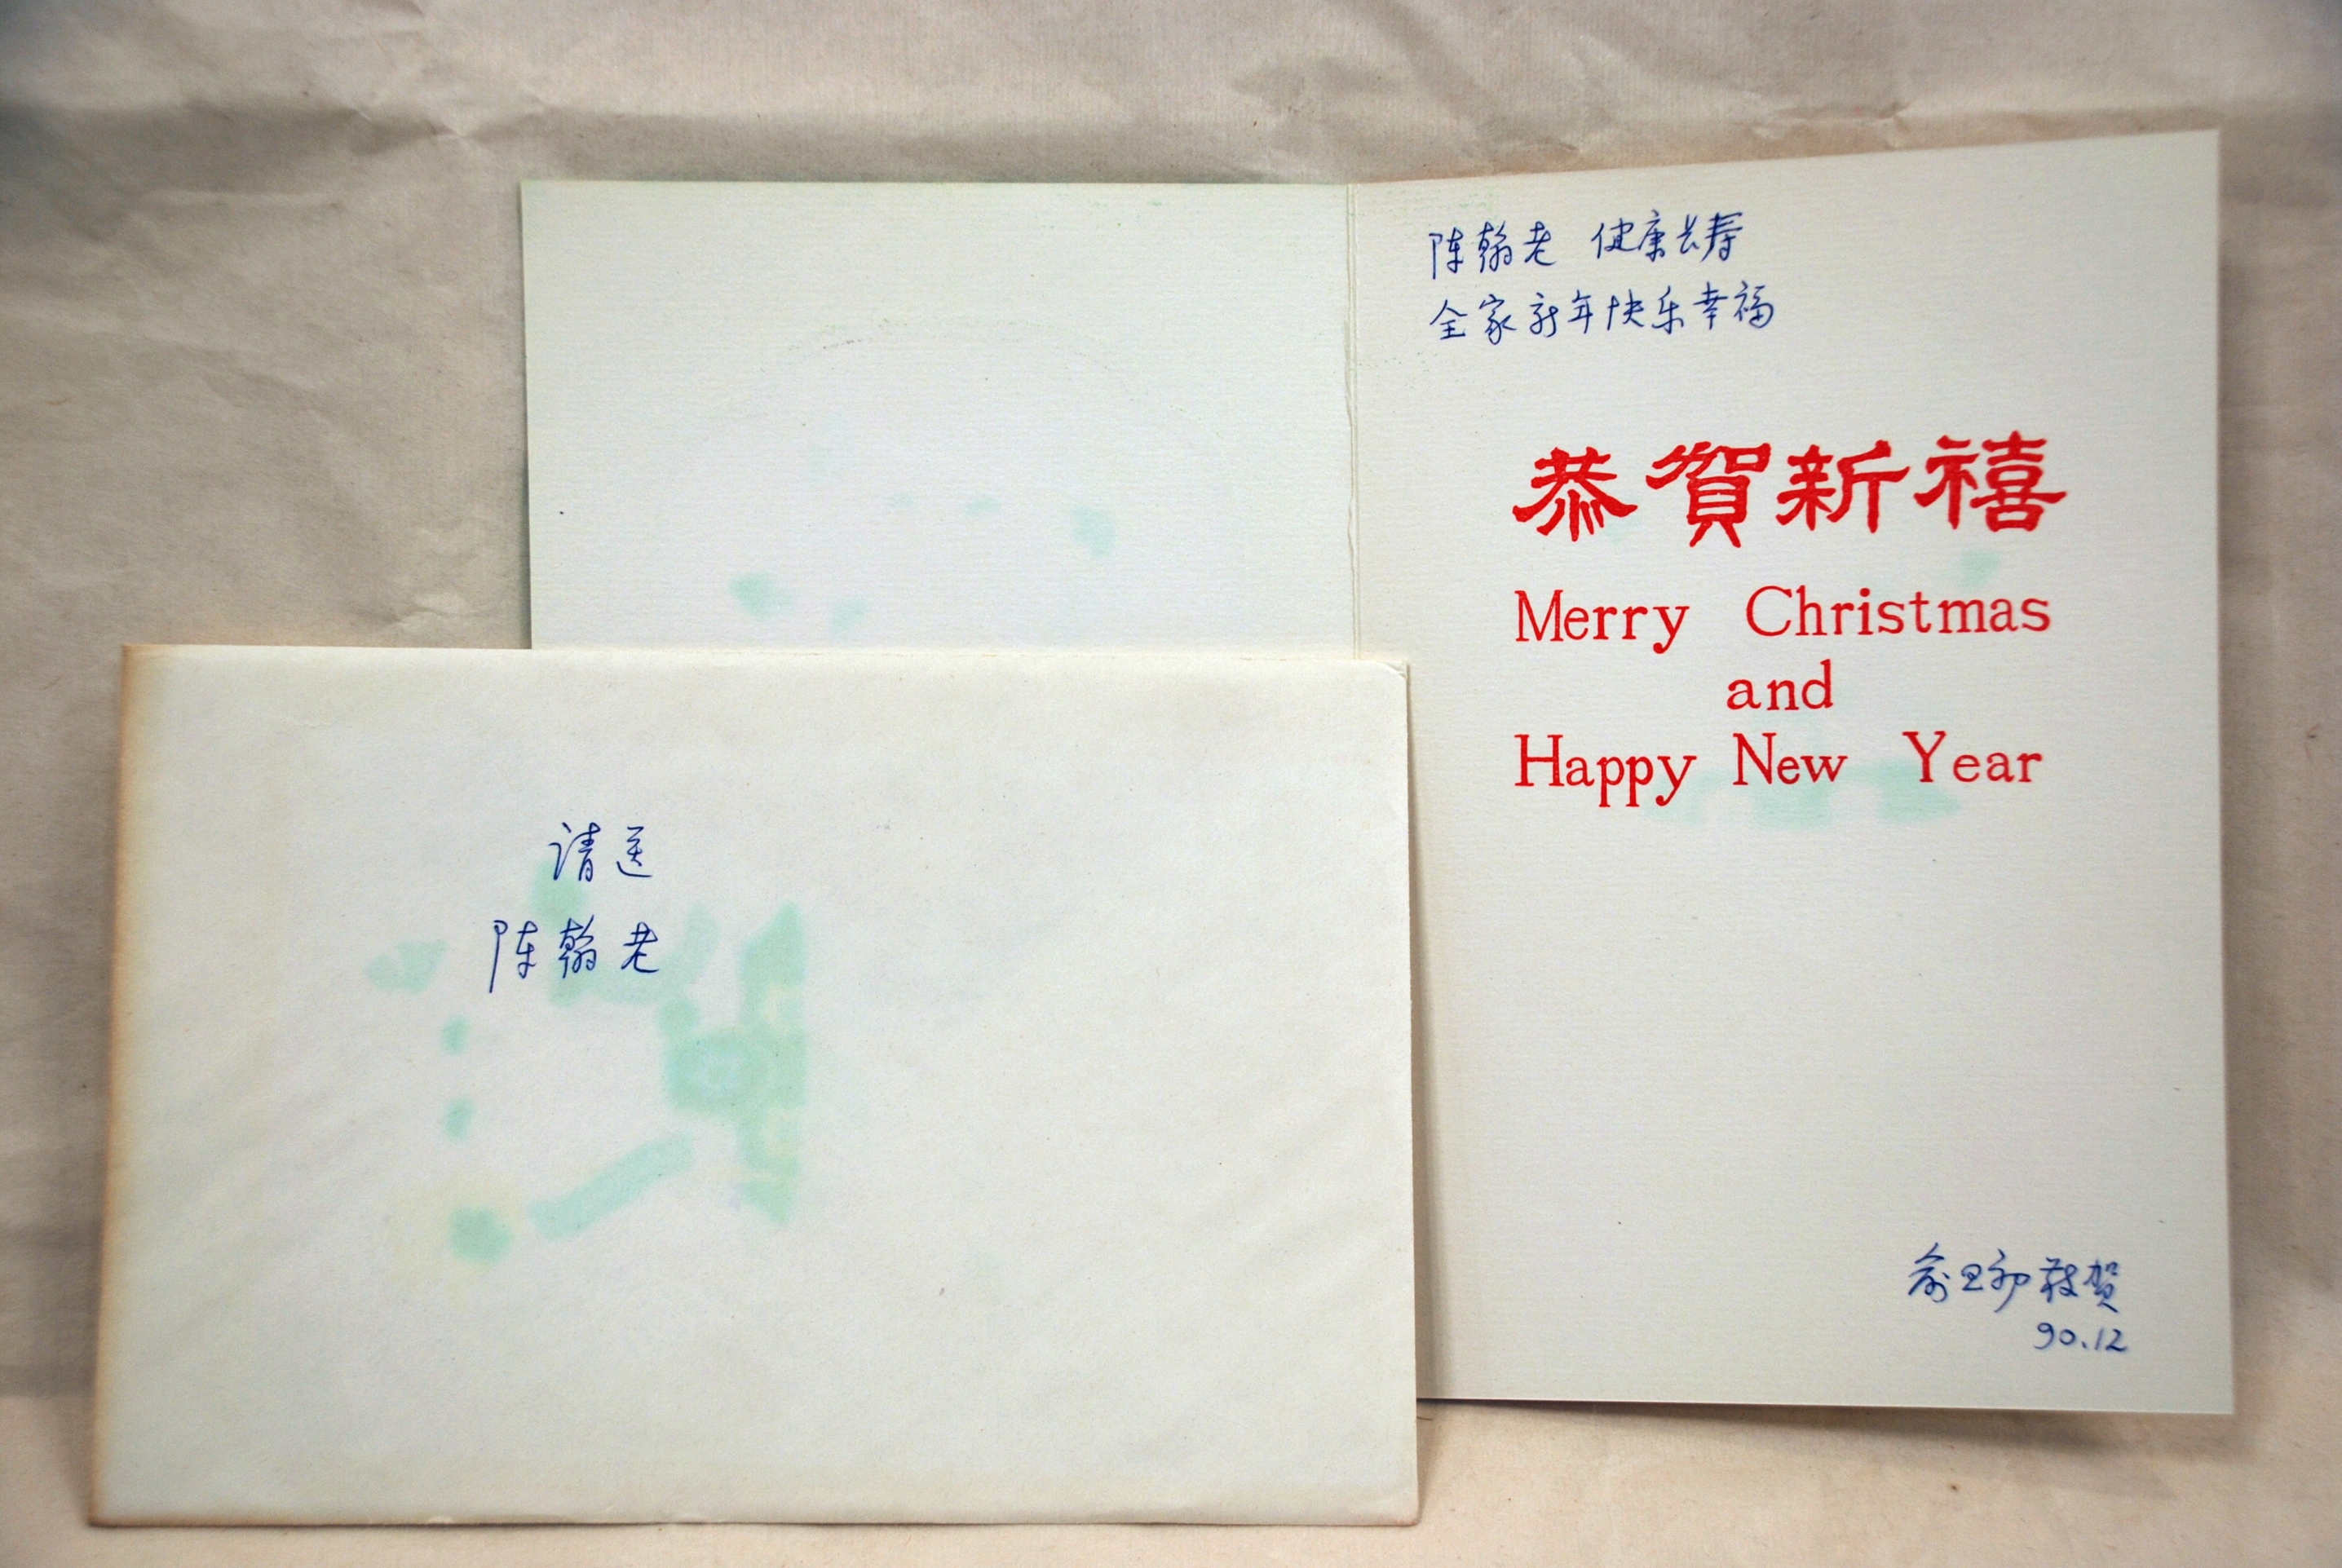 陈翰老 健康长寿
全家新年快乐幸福
恭賀新禧
Merry Christmas
and
Happy New Year
敬贺
90.12
请送
陈翰老